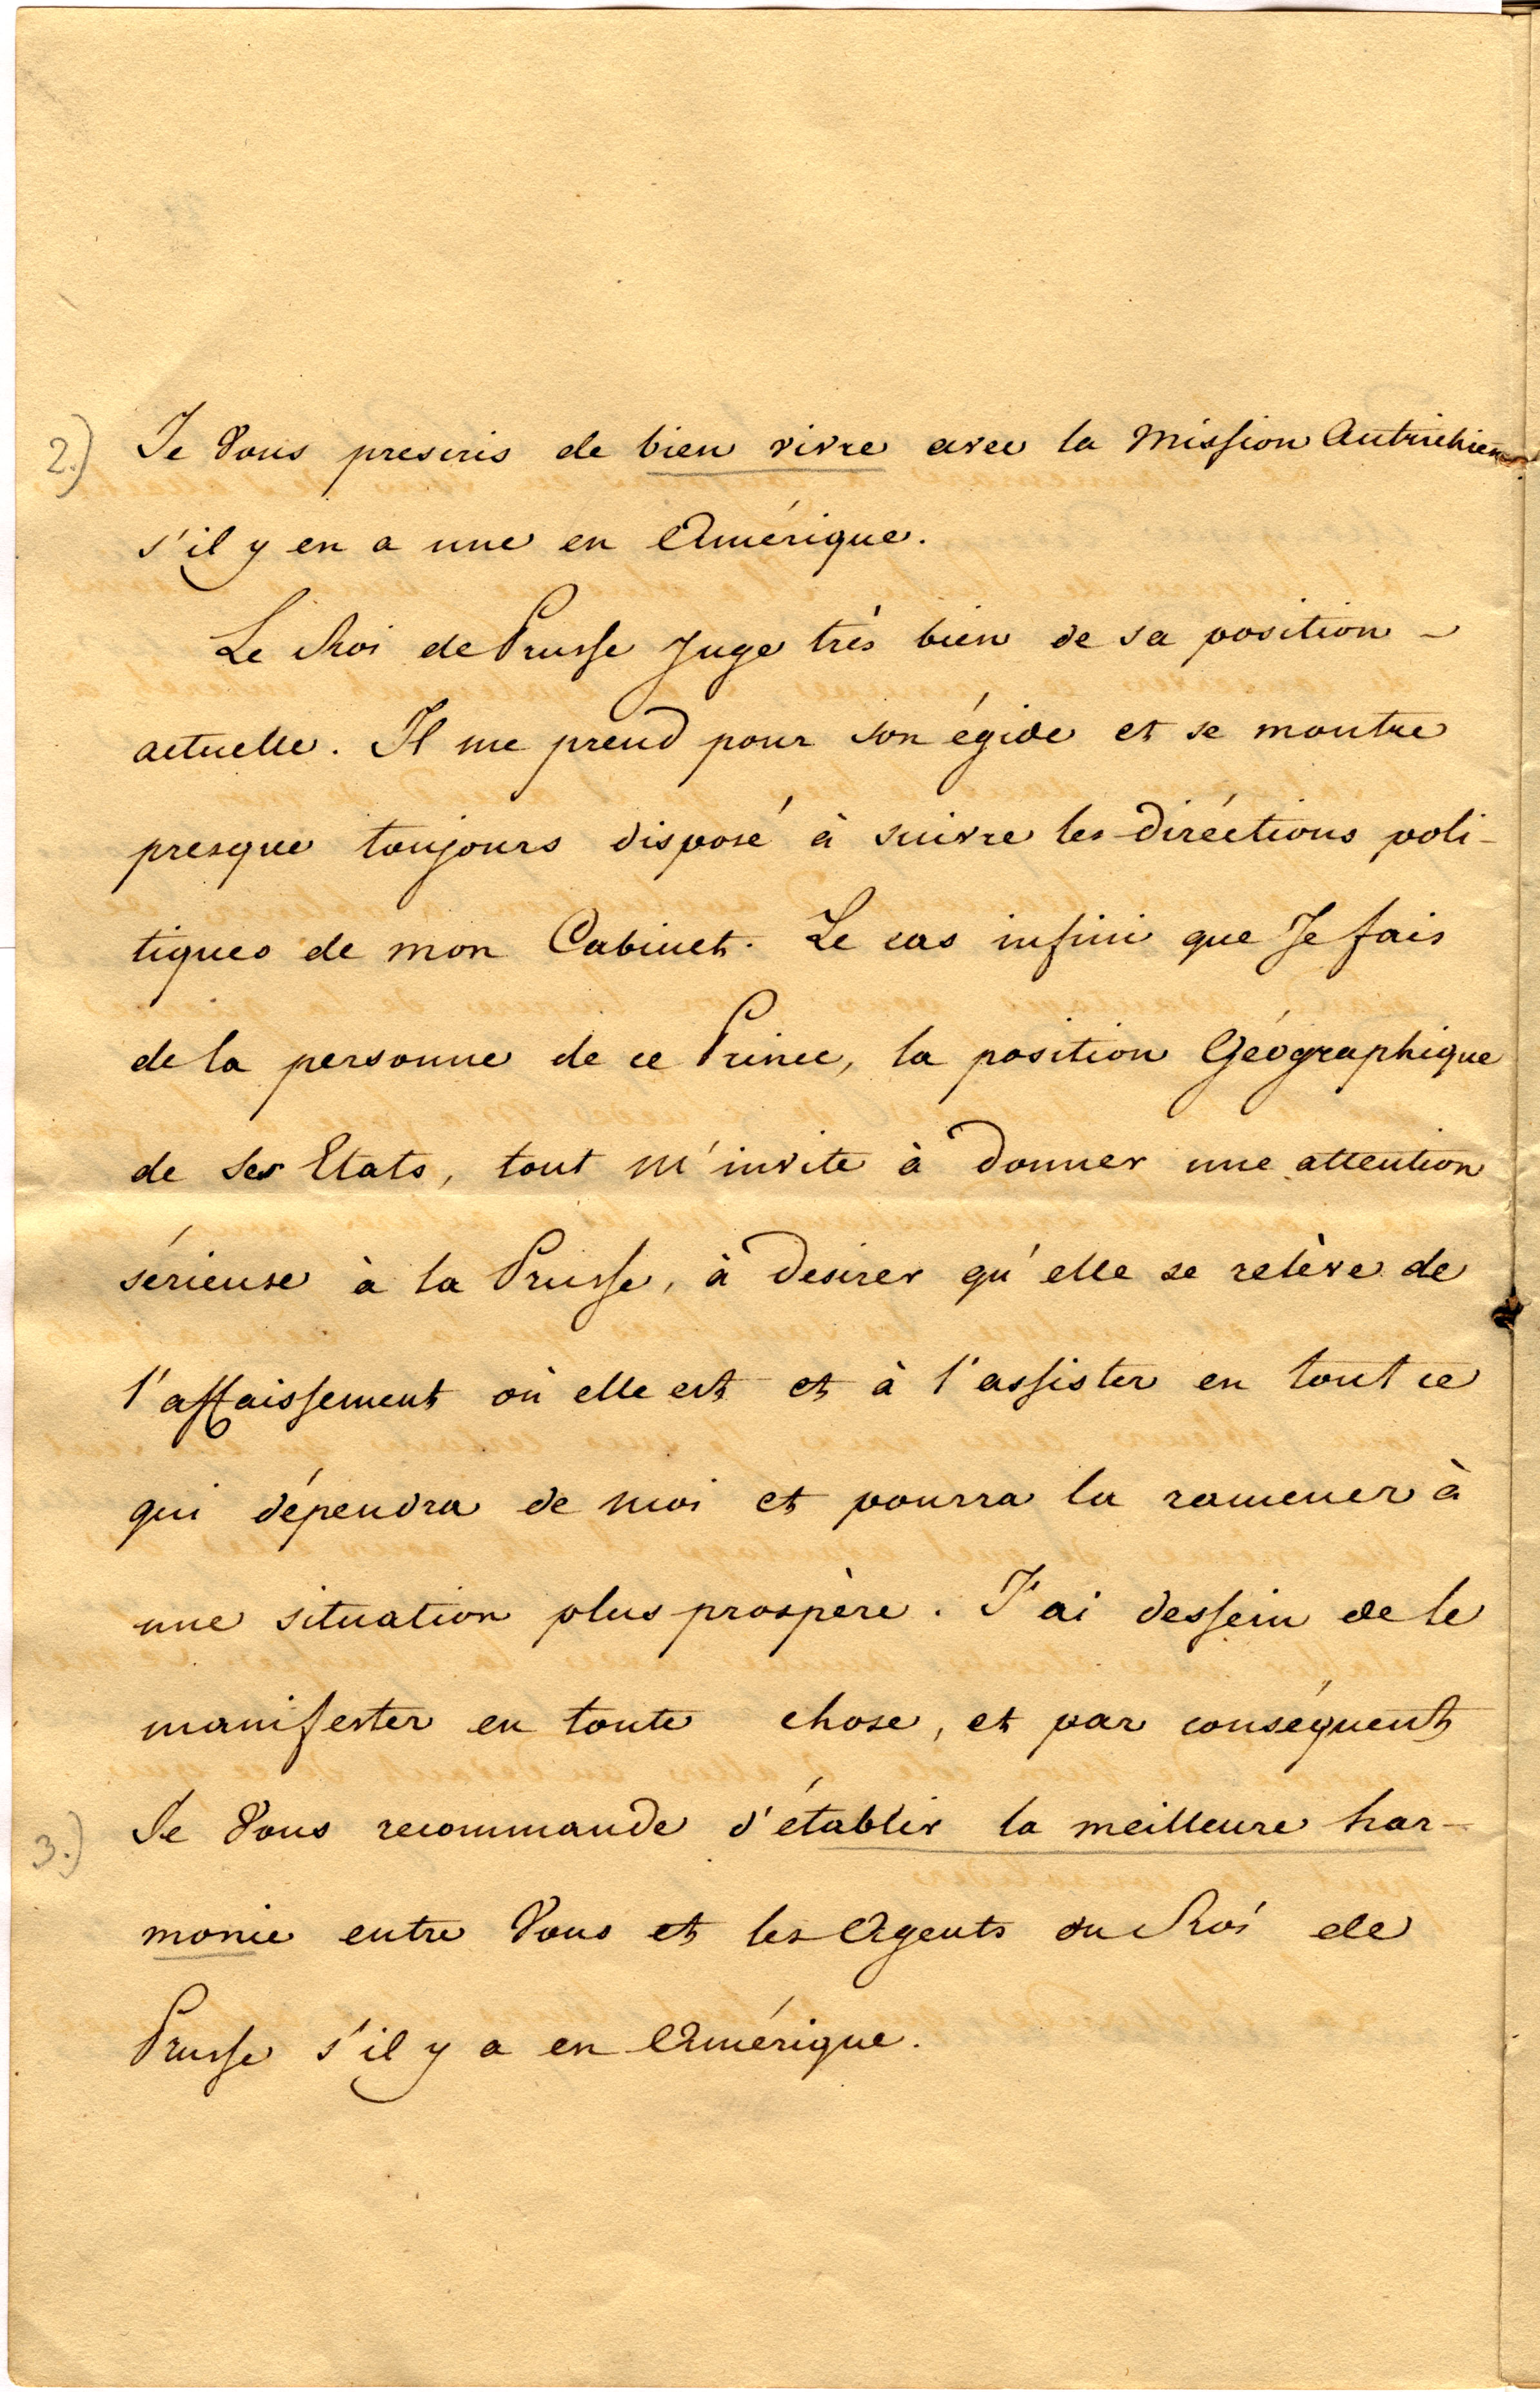 2.) Je Vous prescris de bien vivre avec la Mission Autrichienne
s'il y en a une en Amérique.
Le Roi de Prusse Juge très bien de sa position -
actuelle. Il me prend pour son égide et se montre
presque toujours disposé à suivre les diréctions poli-
tiques de mon Cabinet. Le cas infini que Je fais
de la personne de ce Prince, la position Géographique
de ses Etats, tout m'invite à donner une attention
sérieuse à la Prusse, à desirer qu'elle se relève de
l'affaissement où elle est et à l'assister en tout ce
qui dépendra de moi et pourra la ramener à
une situation plus prospère. J'ai dessein de le
manifester en toute chose, et par conséquent
3.) Je Vous recommande d'établir la meilleure har-
monie entre Vous et les Agents du Roi de
Prusse s'il y a en Amérique.